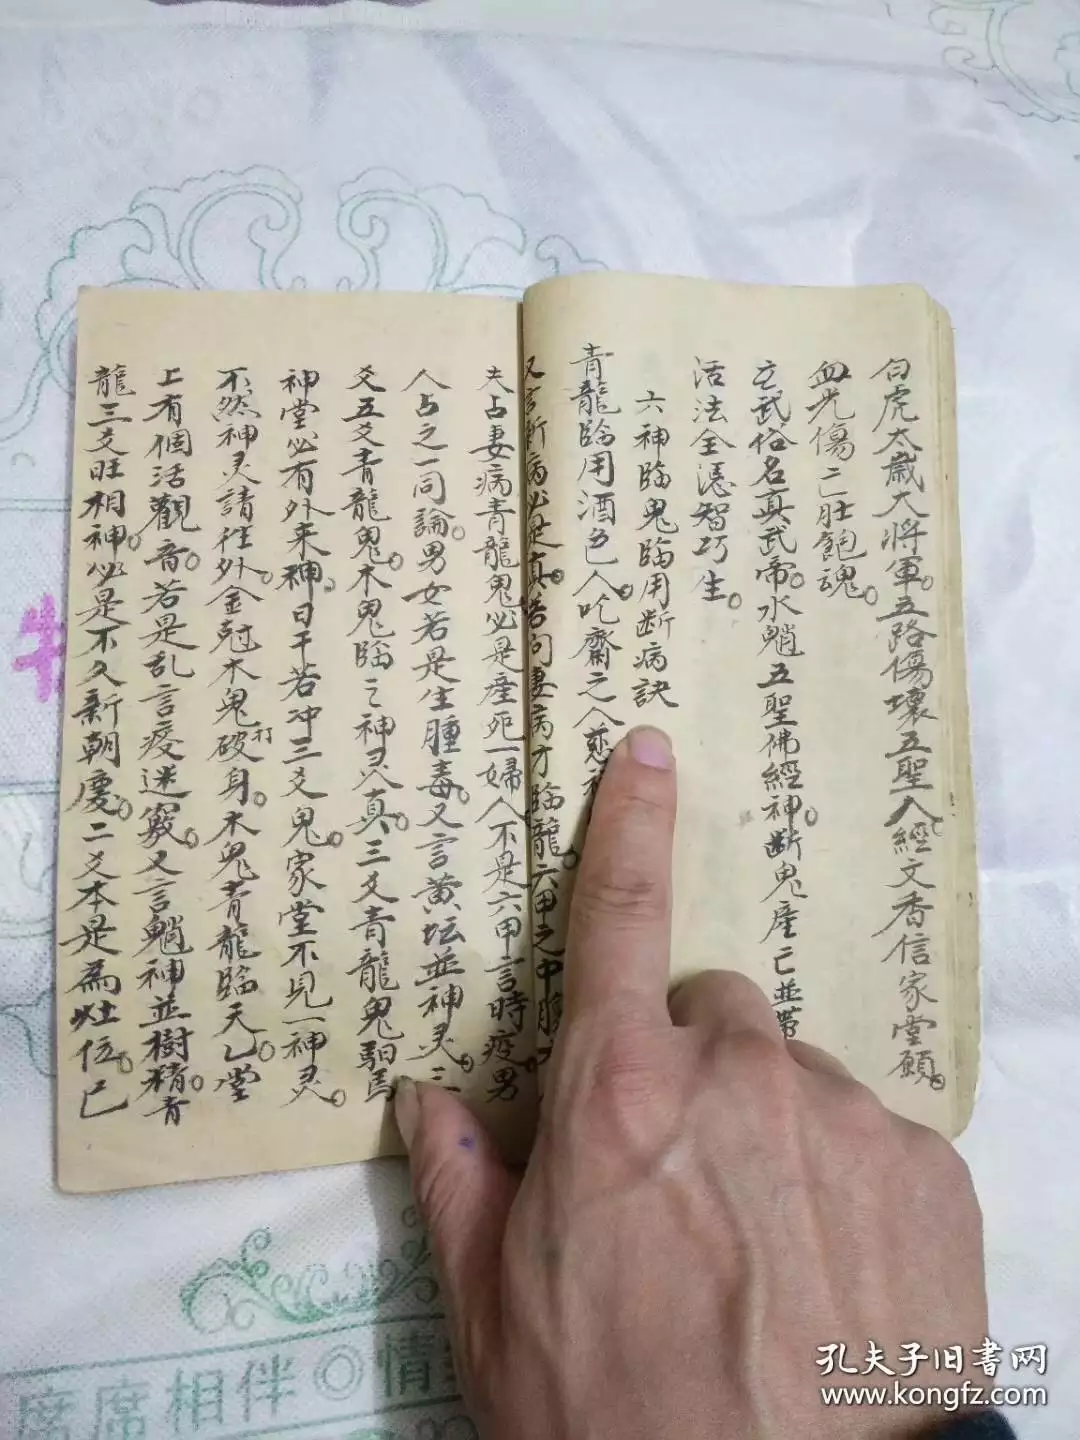 白虎太歲大將軍。五路傷壞五聖人經文香信家堂願。
血光傷亡肚飽魂。
玄武俗名真武帝。水魈五聖佛經神。斷鬼産亡並帶
活法全憑智巧生。
六神臨鬼臨用断病訣
青龍臨用酒色人。吃齋之人慈
又言新病必是真。若问妻病才臨龍。六甲之中腹
夫占妻病青龍鬼必是産死一婦人不是六甲言時疫。男
人占之一同論。男女若是生腫毒。又言黄坛並神灵。三
爻五爻青龍鬼。木鬼臨之神灵真。三爻青龍鬼馹馬
神堂必有外来神。日干若冲三爻鬼。家堂不見一神灵。
不然神灵請往外。金尅木鬼打破身。木鬼青龍臨天乙。堂
上有個活觀音。若是乱言疫迷竅。又言魈神並樹精。青
龍三爻旺相神。必是不久新朝慶。二爻本是為灶伍。已
席席相伴◎情
孔夫子旧書网
www.kongfz.com